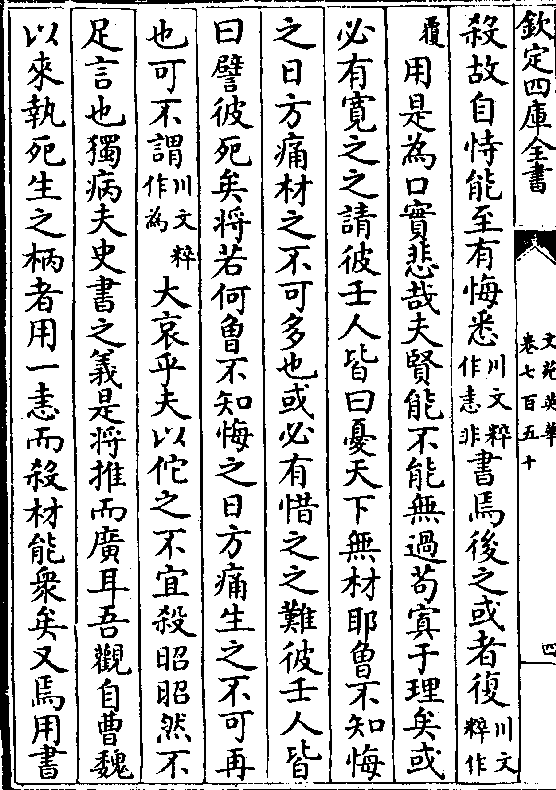 欽定四庫全書
文苑英華
卷七百五十
四
殺故自恃能至有悔悉川文粹作恚非書焉後之或者復川文粹作
覆用是為口實悲哉夫賢能不能無過苟寘于理矣或
必有寛之之請彼壬人皆曰憂天下無材耶曾不知悔
之日方痛材之不可多也或必有惜之之難彼壬人皆
曰譬彼死矣将若何曾不知悔之日方痛生之不可再
也可不謂川文粹作為大哀乎夫以佗之不宜殺昭昭然不
足言也獨病夫史書之義是将推而廣耳吾觀自曹魏
以來執死生之柄者用一恚而殺材能衆矣又焉用書